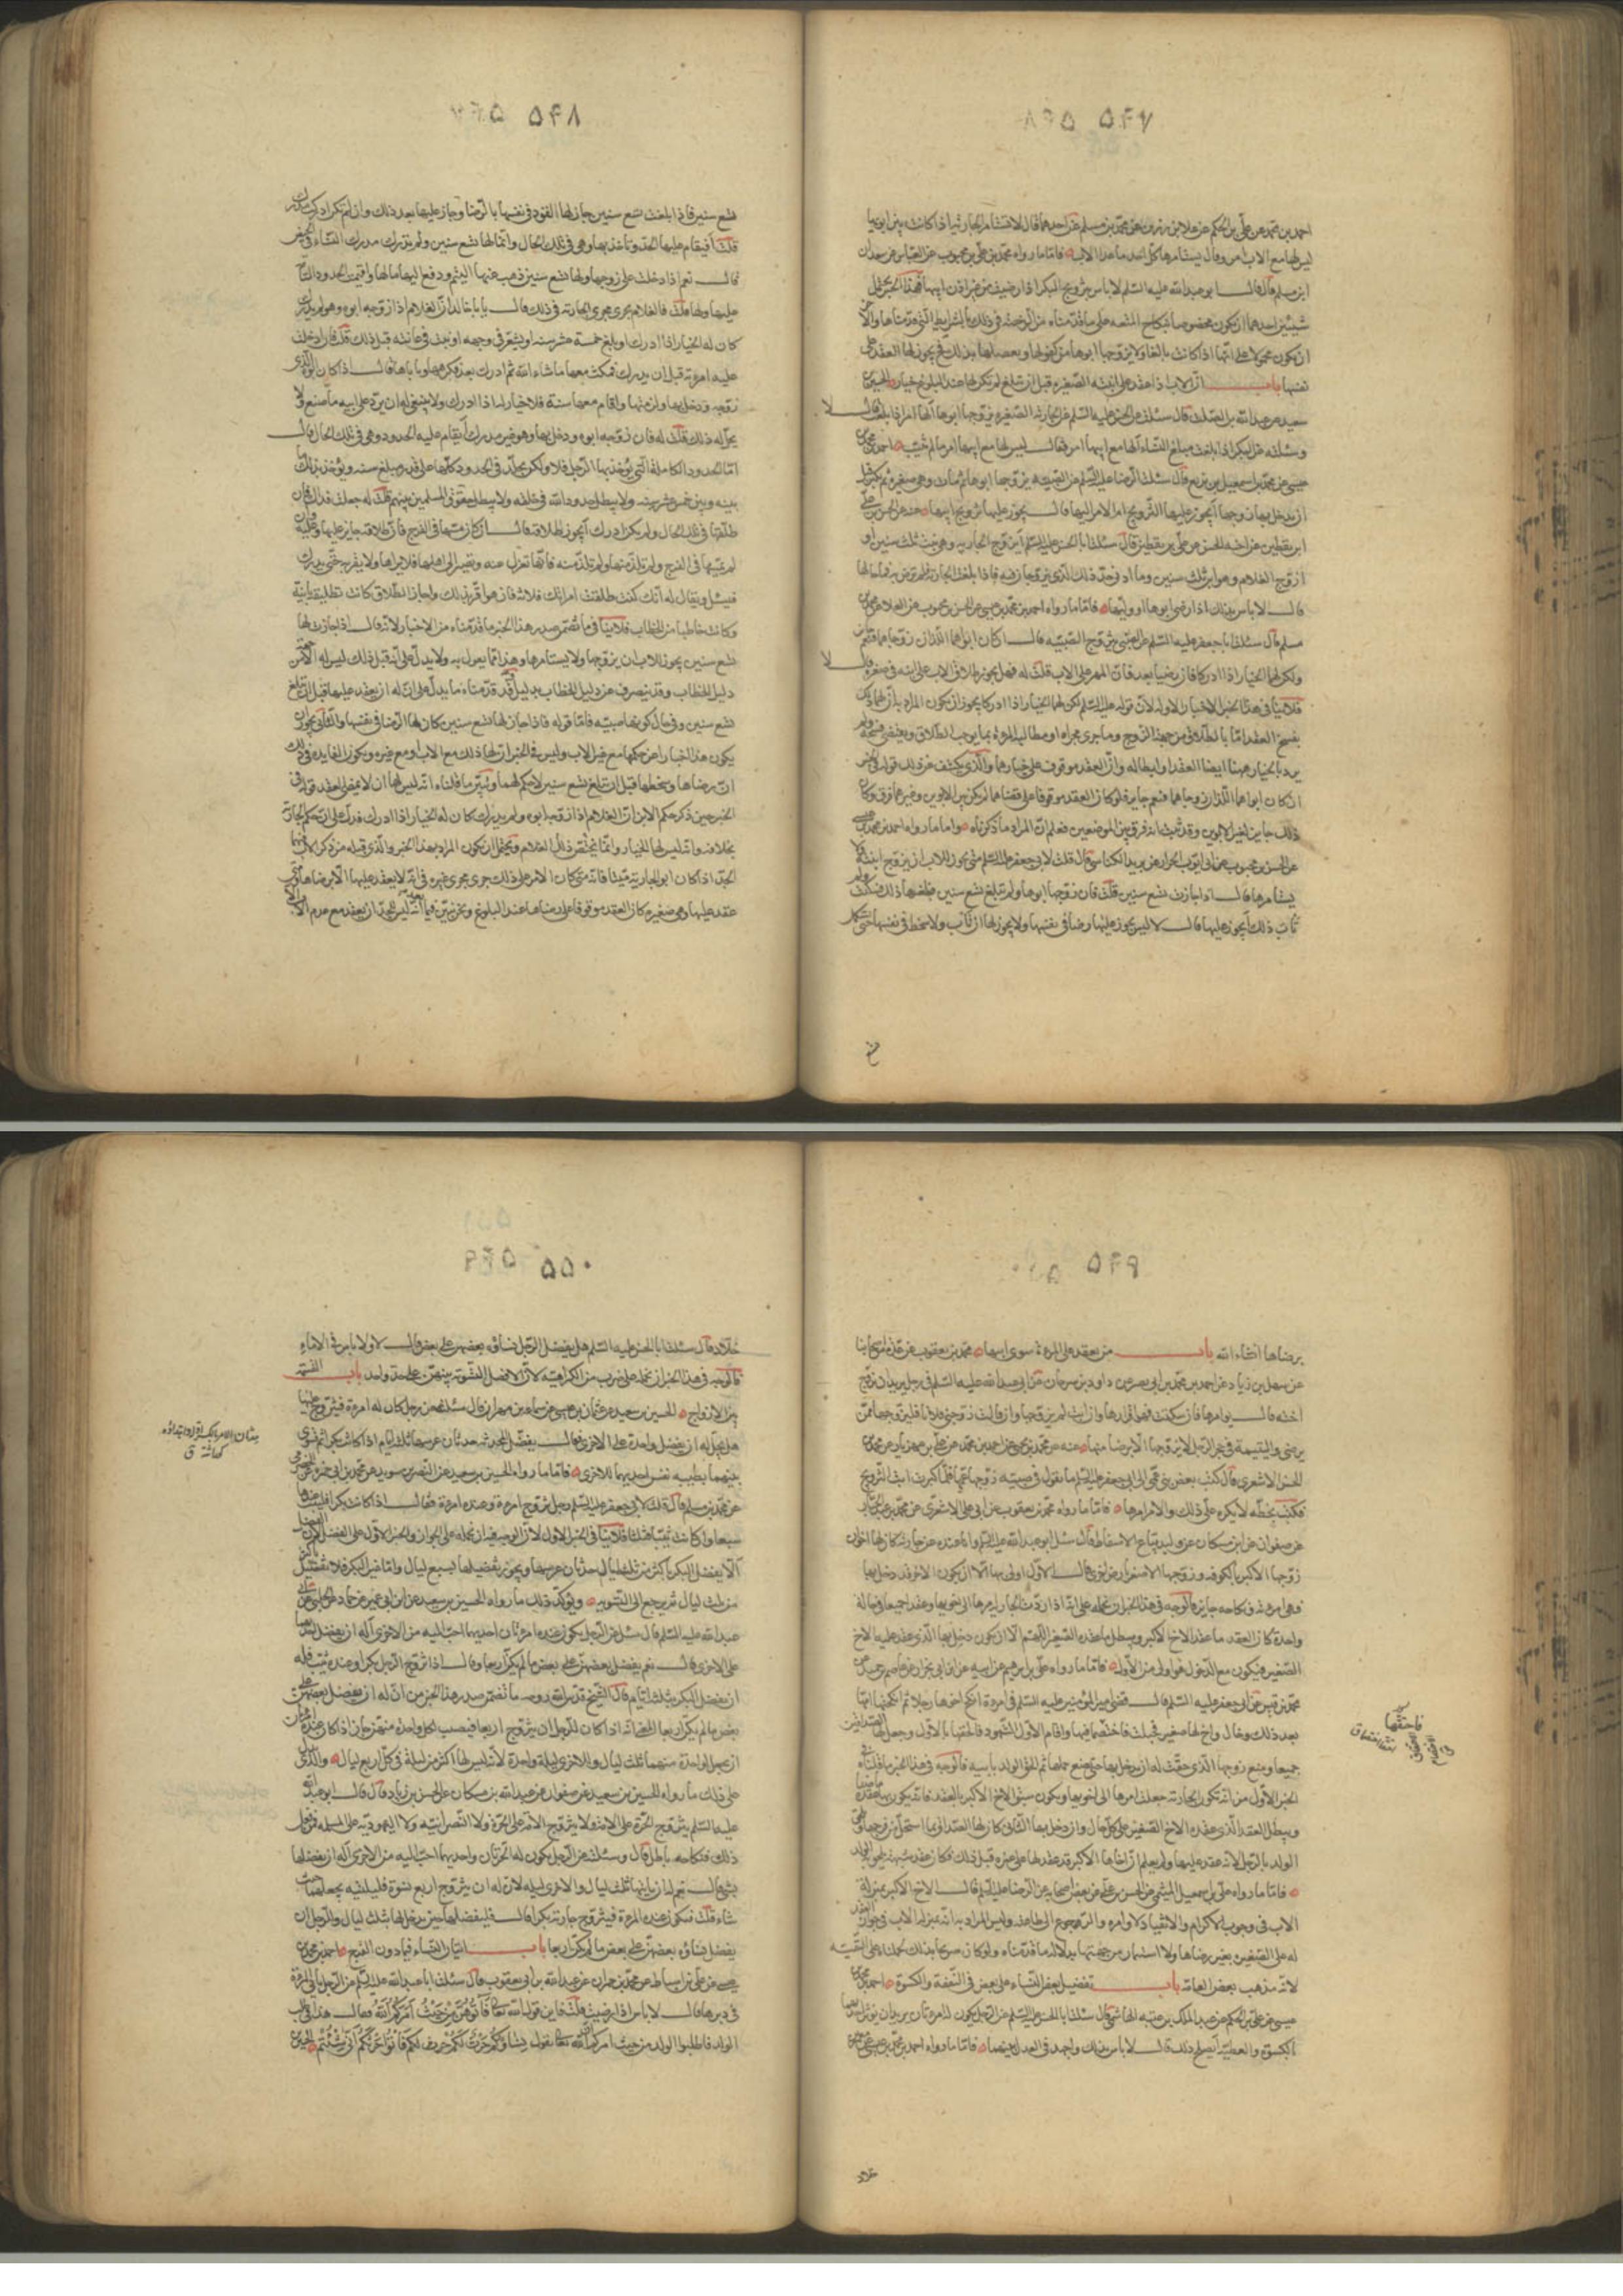 ۵۴۷
احمد بن محمد عن علي بن الحكم عن علاء بن رزين عن محمد بن مسلم عن احدهما قال لا تستامر الجارية اذا كانت بين ابويها
ليس لها مع الاب امر وقال يستامرها كل احد ما عدا الاب فاما ما رواه محمد بن علي بن محبوب عن العباس عن سعدان
ابن مسلم قال قال ابو عبد الله عليه السلم لا باس بتزويج البكر اذا رضيت من غير اذن ابيها فهذا الخبر يحتمل
شيئين احدهما ان يكون مخصوصا بنكاح المتعة على ما قدمناه من الرخصة في ذلك بالشرايط التي قدمناها والاخر
ان يكون محمولا على انها اذا كانت بالغا ولا يزوجها ابوها من كفوها ويعضلها بذلك فح يجوز لها العقد على
نفسها باب ان الاب اذا عقد على ابنته الصغيرة قبل ان تبلغ لم يكن لها عند البلوغ خيار الحسين بن
سعيد عن عبد الله بن الصلت قال سئلت ابا الحسن عليه السلم عن الجارية الصغيرة يزوجها ابوها ألها امر اذا بلغت قال لا
وسئلته عن البكر اذا بلغت مبلغ النساء ألها مع ابيها امر فقال ليس لها مع ابيها امر ما لم تثيب احمد بن محمد بن
عيسى عن محمد بن اسمعيل بن بزيع قال سئلت الرضا عليه السلم عن الصبية يزوجها ابوها ثم مات وهي صغيرة ثم كبرت قبل
ان يدخل بها زوجها أيجوز عليها التزويج او الامر اليها قال يجوز عليها تزويج ابيها عنه عن الحسن بن علي
ابن يقطين عن اخيه الحسين عن علي بن يقطين قال سئلت ابا الحسن عليه السلم أتزوج الجارية وهي بنت ثلث سنين او
ازوج الغلام وهو ابن ثلث سنين وما ادنى حد ذلك الذي يزوجان فيه فاذا بلغت الجارية فلم ترض به فما حالها
قال لا باس بذلك اذا رضي ابوها او وليها فاما ما رواه احمد بن محمد بن عيسى عن الحسن بن محبوب عن العلاء عن محمد بن
مسلم قال سئلت ابا جعفر عليه السلم عن الصبي يزوج الصبية قال ان كان ابواهما اللذان زوجاهما فنعم
ولكن لهما الخيار اذا ادركا فان رضيا بعد فان المهر على الاب قلت له فهل يجوز طلاق الاب على ابنه في صغره قال لا
يفسخ العقد اما بالطلاق من جهة الزوج وما جرى مجراه او مطالبة المرءة بما يوجب الطلاق
يرد بالخيار ههنا ايضا العقد وابطاله وان العقد موقوف على خيارهما والذي يكشف عن ذلك قوله في الخبر
ان كان ابواهما اللذان زوجاهما فنعم جايز فلو كان العقد موقوفا على رضاهما لم يكن بين الابوين وغيرهما فرق وكان
ذلك جايزا لغير الابوين وقد ثبت انه فرق بين الموضعين فعلم ان المراد ما ذكرناه واما ما رواه احمد بن محمد بن عيسى
عن الحسن بن محبوب عن ابي ايوب الخزاز عن بريد الكناسي قال قلت لابي جعفر عليه السلم متى يجوز للاب ان يزوج ابنته ولا
يستامرها قال اذا جازت تسع سنين قلت فان زوجها ابوها ولم تبلغ تسع سنين فبلغها ذلك فسكتت ولم
تاب ذلك أيجوز عليها قال لا ليس يجوز عليها رضا في نفسها ولا يجوز لها ان تاب ولا سخط في نفسها حتى تستكمل
۵۴۸
تسع سنين فاذا بلغت تسع سنين جاز لها القول في نفسها بالرضا وجاز عليها بعد ذلك وان لم تكن ادركت مدرك
قلت أفيقام عليها الحد وتاخذ بها وهي في تلك الحال وانما لها تسع سنين ولم تدرك مدرك النساء في الحيض
قال نعم اذا دخلت على زوجها ولها تسع سنين ذهب عنها اليتم ودفع اليها مالها واقيمت الحدود التامة
عليها ولها قلت فالغلام يجري مجرى الجارية في ذلك قال يا با خالد ان الغلام اذا زوجه ابوه ولم يدرك
كان له الخيار اذا ادرك او بلغ خمسة عشر سنة او يشعر في وجهه او ينبت في عانته قبل ذلك قلت فان ادخلت
عليه امرءته قبل ان يدرك فمكث معها ما شاء الله ثم ادرك بعد فكرهها وتاباها قال اذا كان ابوه الذي
زوجه ودخل بها ولذ منها واقام معها سنة فلا خيار له اذا ادرك ولا ينبغي له ان يرد على ابيه ما صنع ولا
يحل له ذلك قلت له فان زوجه ابوه ودخل بها وهو غير مدرك أيقام عليه الحدود وهو في تلك الحال قال
اما الحدود الكاملة التي يؤخذ بها الرجل فلا ولكن يجلد في الحدود كلها على قدر مبلغ سنه ويؤخذ بذلك ما
بينه وبين خمس عشرة سنة ولا يبطل حدود الله في خلقه ولا يبطل حقوق المسلمين بينهم قلت له جعلت فداك فان
طلقها في تلك الحال ولم يكن ادرك أيجوز طلاقه قال ان كان مسها في الفرج فان طلاقه جايز عليها وعليه وان
لم يمسها في الفرج ولم يلتذ منها ولم تلتذ منه فانها تعزل عنه وتصير الى اهلها فلا يراها ولا تقربه حتى يدرك
فيسئل ويقال له انك كنت طلقت امراتك فلانة فان هو اقر بذلك واجاز الطلاق كانت تطليقة باينة
وكان خاطبا من الخطاب فلا ينافي ما تضمن صدر هذا الخبر ما قدمناه من الاخبار لانه قال اذا جازت لها
تسع سنين يجوز للاب ان يزوجها ولا يستامرها وهذا انما يعول به ولا يدل على انه قبل ذلك ليس له الا من جهة
دليل الخطاب وقد ينصرف عن دليل الخطاب بدليل وقد قدمناه ما يدل على انه له ان يعقد عليها قبل ان تبلغ
تسع سنين وفي حال كونها صبية فاما قوله فاذا جاز لها تسع سنين كان لها الرضا في نفسها والتابي يجوز ان
يكون هذا اخبارا عن حكمها مع غير الاب وليس في الخبر ان لها ذلك مع الاب او مع غيره ويكون الفايدة في ذلك
ان رضاها وسخطها قبل ان تبلغ تسع سنين لا حكم لهما ويبين ما قلناه انه ليس لها ان لا يمضي العقد قوله في
الخبر حين ذكر حكم الابن ان الغلام اذا زوجه ابوه ولم يدرك كان له الخيار اذا ادرك فدل على ان حكم الجارية
بخلافه وانه ليس لها الخيار وانما يختص ذلك الغلام ويحتمل ان يكون المراد بهذا الخبر والذي قبله من ذكر الاب
الجد اذا كان ابو الجارية ميتا فانه متى كان الامر على ذلك جرى مجرى غيره في انه لا يعقد عليها الا برضاها ومتى
عقد عليها وهي صغيرة كان العقد موقوفا على رضاها عند البلوغ ونحن نبين فيما بعد انه ليس للجد ان يعقد مع عدم الاب الا
۵۴۹
برضاها انشاء الله باب من يعقد على المرءة سوى ابيها محمد بن يعقوب عن عدة من اصحابنا
عن سهل بن زياد عن احمد بن محمد بن ابي نصر عن داود بن سرحان عن ابي عبد الله عليه السلم في رجل يريد ان يزوج
اخته قال يوامرها فان سكتت فهو اقرارها وان ابت لم يزوجها وان قالت زوجني فلانا فليزوجها ممن
ترضى واليتيمة في حجر الرجل لا يزوجها الا برضا منها عنه عن محمد بن يحيى عن احمد بن محمد عن علي بن مهزيار عن محمد بن
الحسن الاشعري قال كتب بعض بني عمي الى ابي جعفر عليه السلم ما تقول في صبية زوجها عمها فلما كبرت ابت التزويج
فكتب بخطه لا تكره على ذلك والامر امرها فاما ما رواه محمد بن يعقوب عن ابي علي الاشعري عن محمد بن عبد الجبار
عن صفوان عن ابن مسكان عن وليد بياع الاسفاط قال سئل ابو عبد الله عليه السلم وانا عنده عن جارية كان لها اخوان
زوجها الاكبر بالكوفة وزوجها الاصغر بارض اخرى قال الاول اولى بها الا ان يكون الاخر قد دخل بها
فهي امرءته ونكاحه جايز فالوجه في هذا الخبر ان نحمله على انه اذا ردت الجارية امرها الى اخويها وعقدا جميعا في حالة
واحدة كان العقد ما عقد الاخ الاكبر ويبطل ما عقده الصغير اللهم الا ان يكون دخل بها الذي عقد عليه الاخ
الصغير فيكون مع الدخول هو اولى من الاول فاما ما رواه علي بن ابراهيم عن ابيه عن ابن ابي نجران عن عاصم بن حميد عن
محمد بن قيس عن ابي جعفر عليه السلم قال قضى امير المؤمنين عليه السلم في امرءة انكحها اخوها رجلا ثم انكحتها امها
بعد ذلك رجلا وخال واخ لها صغير فحبلت فاختصما فيها فاقام الاول الشهود فالحقها بالاول وجعل لها الصداقين
جميعا ومنع زوجها الذي حقت له ان يدخل بها حتى تضع حملها ثم الحق الولد بابيه فالوجه في هذا الخبر ما قلناه في
الخبر الاول من انه تكون الجارية جعلت امرها الى اخويها ويكون سبق الاخ الاكبر بالعقد فانه يكون ماضيا ما عقده
ويبطل العقد الذي عقده الاخ الصغير على كل حال وان دخل بها الثاني كان لها الصداق بما استحل من فرجها ويلحق
الولد بالرجل لانه عقد عليها ولم يعلم ان اخاها الاكبر قد عقد لها على غيره قبل ذلك فكان عقد شبهة يلحق به الولد
فاما ما رواه علي بن اسمعيل الميثمي عن الحسن بن علي عن بعض اصحابنا عن الرضا عليه السلم قال الاخ الاكبر بمنزلة
الاب في وجوب الاكرام والانقياد لاوامره والرجوع الى طاعته وليس المراد به انه بمنزلة الاب في جواز العقد
له على الصغير بغير رضاها ولا استيمار من جهتها بدلالة ما قدمناه ولو كان صريحا بذلك لحملناه على التقية
لانه مذهب بعض العامة باب تفضيل بعض النساء على بعض في النفقة والكسوة احمد بن محمد بن
عيسى عن علي بن الحكم عن عبد الملك بن عتبة الهاشمي قال سئلت ابا الحسن عليه السلم عن الرجل يكون له امرءتان يريد ان يؤثر احديهما
بالكسوة والعطية أيصلح ذلك قال لا باس بذلك واجهد في العدل بينهما فاما ما رواه احمد بن محمد بن عيسى عن معمر بن
خلاد
۵۵۰
خلاد قال سئلت ابا الحسن عليه السلم هل يفضل الرجل نساؤه بعضهن على بعض قال لا ولا باس في الاماء
فالوجه في هذا الخبر ان نحمله على ضرب من الكراهية لان الافضل التسوية بينهن على حد واحد باب القسمة
بين الازواج الحسين بن سعيد عن عثمان بن عيسى عن سماعة بن مهران قال سئلته عن رجل كان له امرءة فيتزوج عليها
هل يحل له ان يفضل واحدة على الاخرى فقال يفضل المحدثة حدثان عرسها ثلثة ايام اذا كانت بكرا ثم يسوي
بينهما بطيبة نفس احديهما للاخرى فاما ما رواه الحسين بن سعيد عن النضر بن سويد عن محمد بن ابي حمزة عن الحضرمي
عن محمد بن مسلم قال قلت لابي جعفر عليه السلم رجل تزوج امرءة وعنده امرءة فقال اذا كانت بكرا فليبت عندها
سبعا وان كانت ثيبا فثلثا فلا ينافي الخبر الاول لان الوجه فيه ان نحمله على الجواز والخبر الاول على الفضل لان الافضل
ألا يفضل البكر باكثر من ثلث ليال حدثان عرسها ويجوز تفضيلها بسبع ليال واما غير البكر فلا تفضيل باكثر
من ثلث ليال ثم يرجع الى التسوية ويؤكد ذلك ما رواه الحسين بن سعيد عن ابن ابي عمير عن حماد عن الحلبي عن ابي
عبد الله عليه السلم قال سئل عن الرجل يكون عنده امرءتان احديهما احب اليه من الاخرى أله ان يفضل احديهما
على الاخرى قال نعم يفضل بعضهن على بعض ما لم يكن اربعا وقال اذا تزوج الرجل بكرا وعنده ثيب فله
ان يفضل البكر بثلثة ايام قال الشيخ قدس الله روحه ما تضمن صدر هذا الخبر من ان له ان يفضل بعضهن على
بعض ما لم يكن اربعا المعنى فيه انه اذا كان للرجل ان يتزوج اربعا فيصيب لكل واحدة منهن جاز اذا كان عنده امرءتان
ان يجعل لواحدة منهما ثلث ليال وللاخرى ليلة واحدة لانه ليس لها اكثر من ليلة في كل اربع ليال والذي يدل
على ذلك ما رواه الحسين بن سعيد عن صفوان عن عبد الله بن مسكان عن الحسن بن زياد قال قال ابو عبد الله
عليه السلم يتزوج الحرة على الامة ولا يتزوج الامة على الحرة ولا النصرانية ولا اليهودية على المسلمة فمن فعل
ذلك فنكاحه باطل قال وسئلته عن الرجل يكون له امرءتان واحديهما احب اليه من الاخرى أله ان يفضلها
بشيء قال نعم له ان ياتيها ثلث ليال والاخرى ليلة لان له ان يتزوج اربع نسوة فليلتيه يجعلهما حيث
شاء قلت فتكون عنده المرءة فيتزوج جارية بكرا قال فليفضلها حين يدخل بها ثلث ليال وللرجل ان
يفضل نساؤه بعضهن على بعض ما لم يكن اربعا باب اتيان النساء فيما دون الفرج احمد بن محمد بن
عيسى عن علي بن اسباط عن محمد بن حمران عن عبد الله بن ابي يعفور قال سئلت ابا عبد الله عليه السلم عن الرجل ياتي المرءة
في دبرها قال لا باس اذا رضيت قلت فاين قول الله تعالى فاتوهن من حيث امركم الله فقال هذا في طلب
الولد فاطلبوا الولد من حيث امركم الله ان الله تعالى يقول نساؤكم حرث لكم فاتوا حرثكم انى شئتم الحسين بن